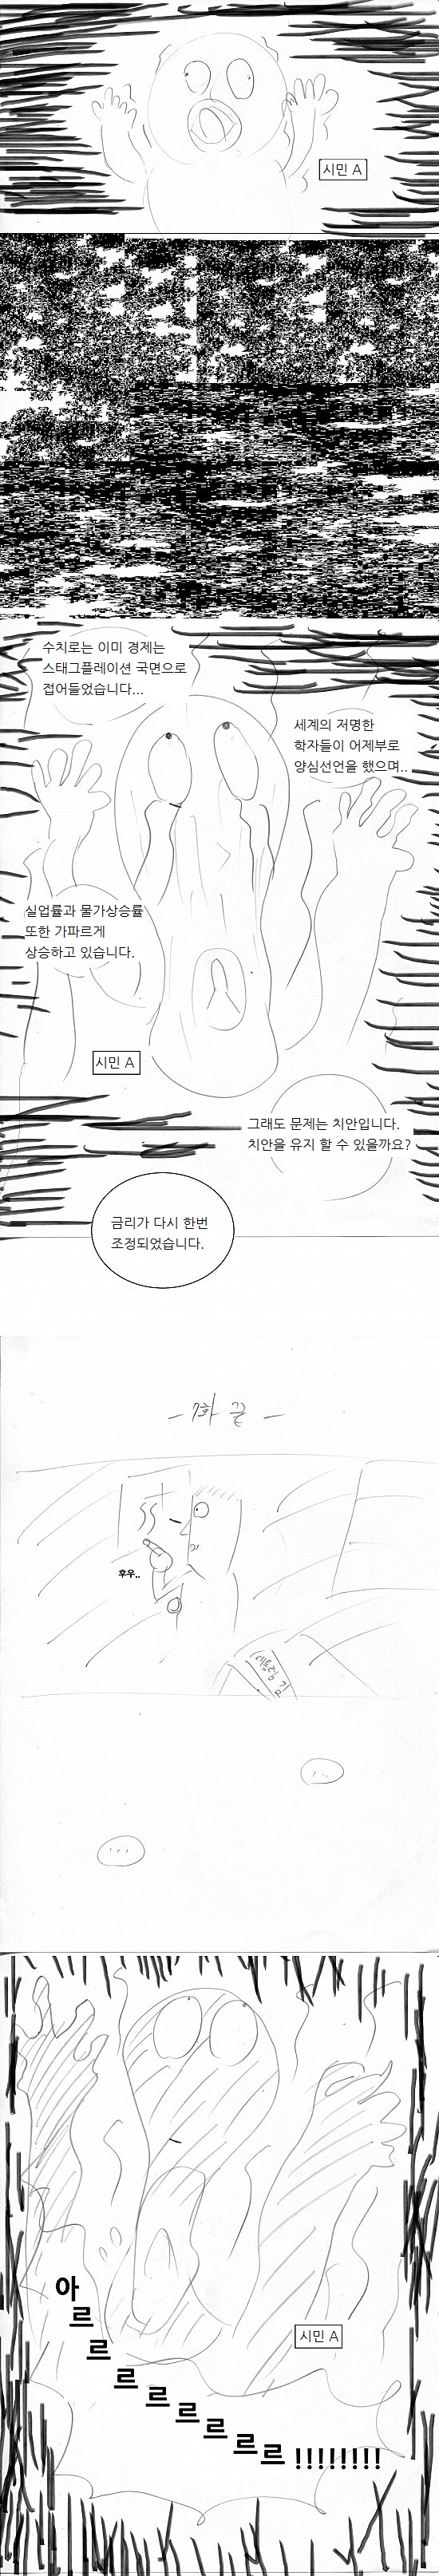 시민 A
수치로는 이미 경제는
스태그플레이션 국면으로
접어들었습니다...
세계의 저명한
학자들이 어제부로
양심선언을 했으며..
실업률과 물가상승률
또한 가파르게
상승하고 있습니다.
시민 A
그래도 문제는 치안입니다.
치안을 유지 할 수 있을까요?
금리가 다시 한번
조정되었습니다.
- 7화 끝 -
후우..
...
...
시민 A
아
르
르
르
르
르
르
르
르!!!!!!!!